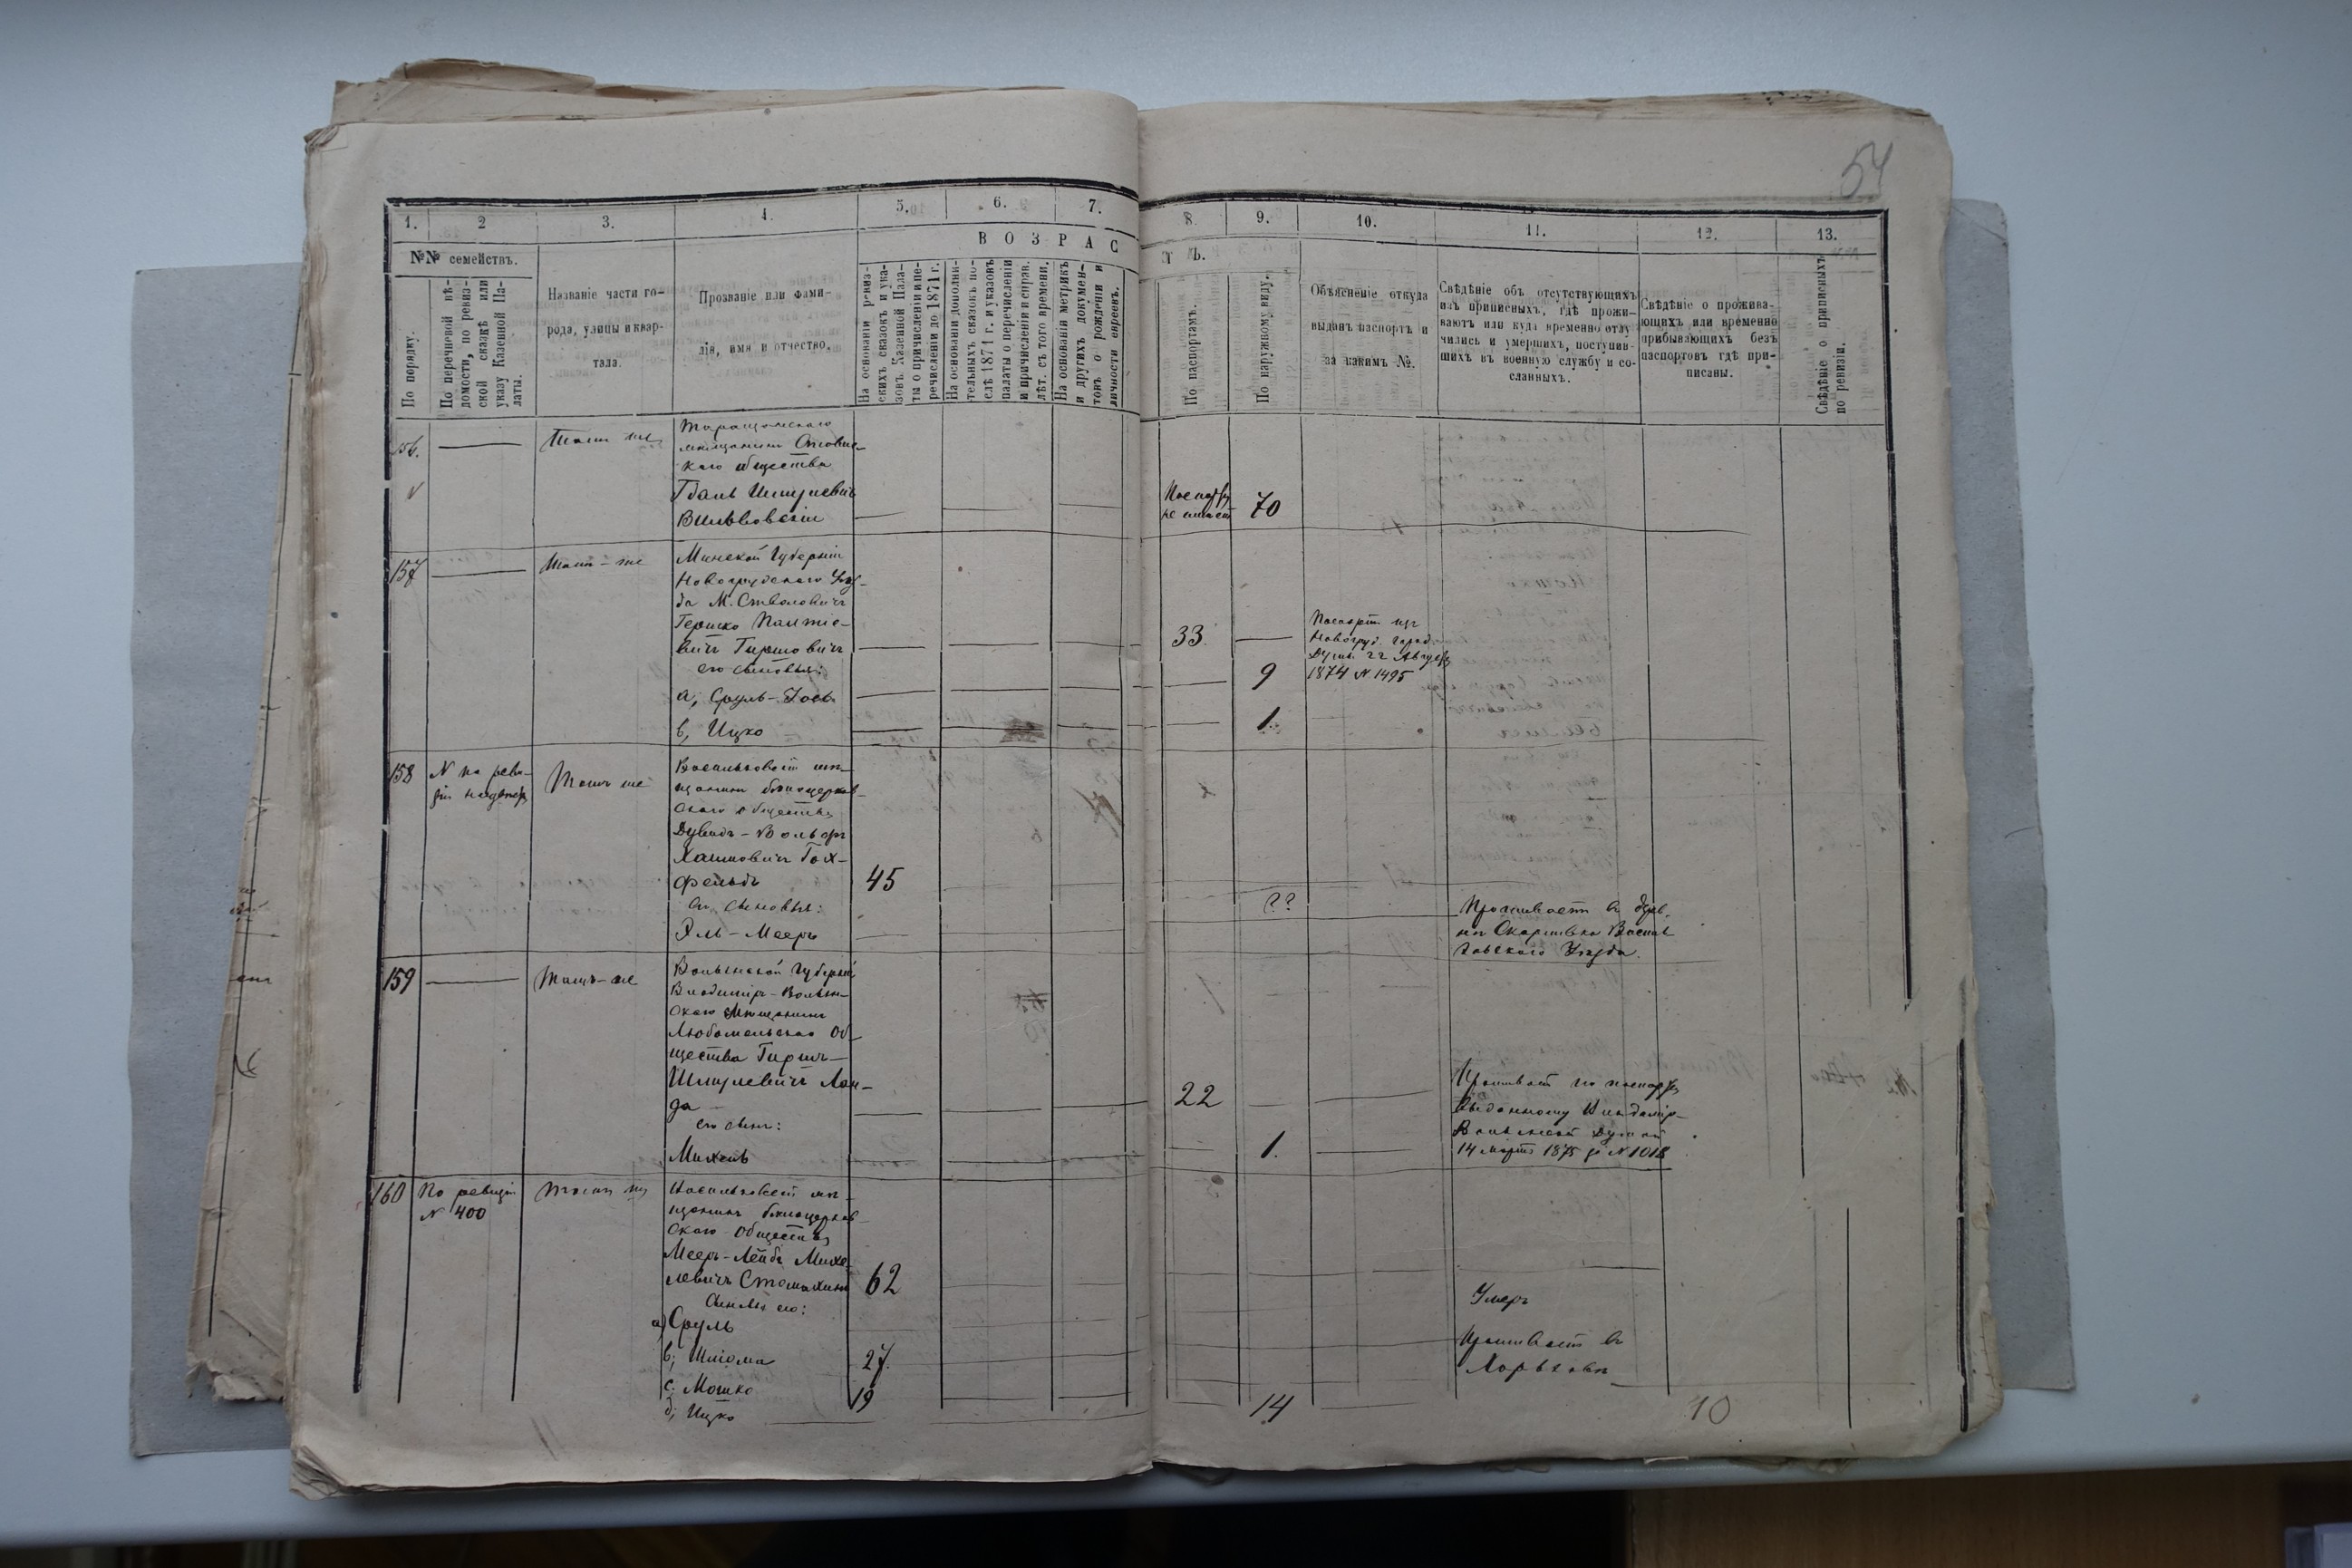 54
1. 2 3. 4. 5. 6. 7. 8. 9. 10. 11. 12. 13.
№№ семействъ.
ВОЗРАСТЪ.
По порядку.
По перечневой вѣ-
домости, по ревиз-
ской сказкѣ или
указу Казенной Па-
латы.
Названіе части го-
рода, улицы и квар-
тала.
Прозваніе или фами-
лія, имя и отчество.
На основаніи ревиз-
скихъ сказокъ и ука-
зовъ Казенной Пала-
ты о причисленіи и пе-
речисленіи до 1871 г.
На основаніи дополни-
тельныхъ сказокъ по-
слѣ 1871 г. и указовъ
палаты о перечисленіи
и причисленіи и справ.
лѣт. съ того времени.
На основаніи метрикъ
и другихъ докумен-
товъ о рожденіи и
личности евреевъ.
По паспортамъ.
По наружному виду.
Объясненіе откуда
выданъ паспортъ и
за какимъ №.
Свѣдѣніе объ отсутствующихъ
изъ приписныхъ, гдѣ прожи-
ваютъ или куда временно отлу-
чились и умершихъ, поступив-
шихъ въ военную службу и со-
сланныхъ.
Свѣдѣніе о прожива-
ющихъ или временно
прибывающихъ безъ
паспортовъ гдѣ при-
писаны.
Свѣдѣніе о приписныхъ
по ревизіи.
156.
Тамъ же
Таращанского
мѣщанинъ
каго общества
Гдаль Шмулевичъ
Паспорта
не имѣетъ
70
157
Тамъ-же
Минской Губерніи
Новогрудскаго Уѣз-
да М. Столовичъ
Гершко
вичъ Гиршовичъ
33.
Паспортъ изъ
Новогруд. город.
Думы 22 Августа
1874 № 1495
его сыновья:
а, Сруль-Іось
9
в, Ицко
1.
158
№ по реви-
зіи неизвѣст
Тамъ же
Васильковскій мѣ-
щанинъ бѣлоцерков-
скаго общества
Дувидъ-Вольфъ
Хаимовичъ Гох-
фельдъ
45
его сыновья:
Эль-Мееръ
??
Проживаетъ въ дерев-
нѣ Василь-
ковскаго Уѣзда.
159
Тамъ-же
Волынской Губерніи
Владимір-Волын-
скаго Мѣщанинъ
Любомльскаго Об-
щества Гиршъ-
Шмулевичъ Лан-
да
22
Проживаетъ по паспорту
выданному Владимір-
Волынской Думой
14 Марта 1875 за № 1018
его сынъ:
Михель
1.
160
По ревизіи
№ 400
Тамъ же
Васильковскій мѣ-
щанинъ бѣлоцерков-
скаго Общества
Мееръ-Лейбъ Михе-
левичъ
62
Сыновья его:
а) Сруль
Умеръ
в, Шлiома
27.
Проживаетъ въ
Харьковѣ
с, Мошко
19
д, Ицко
14
10